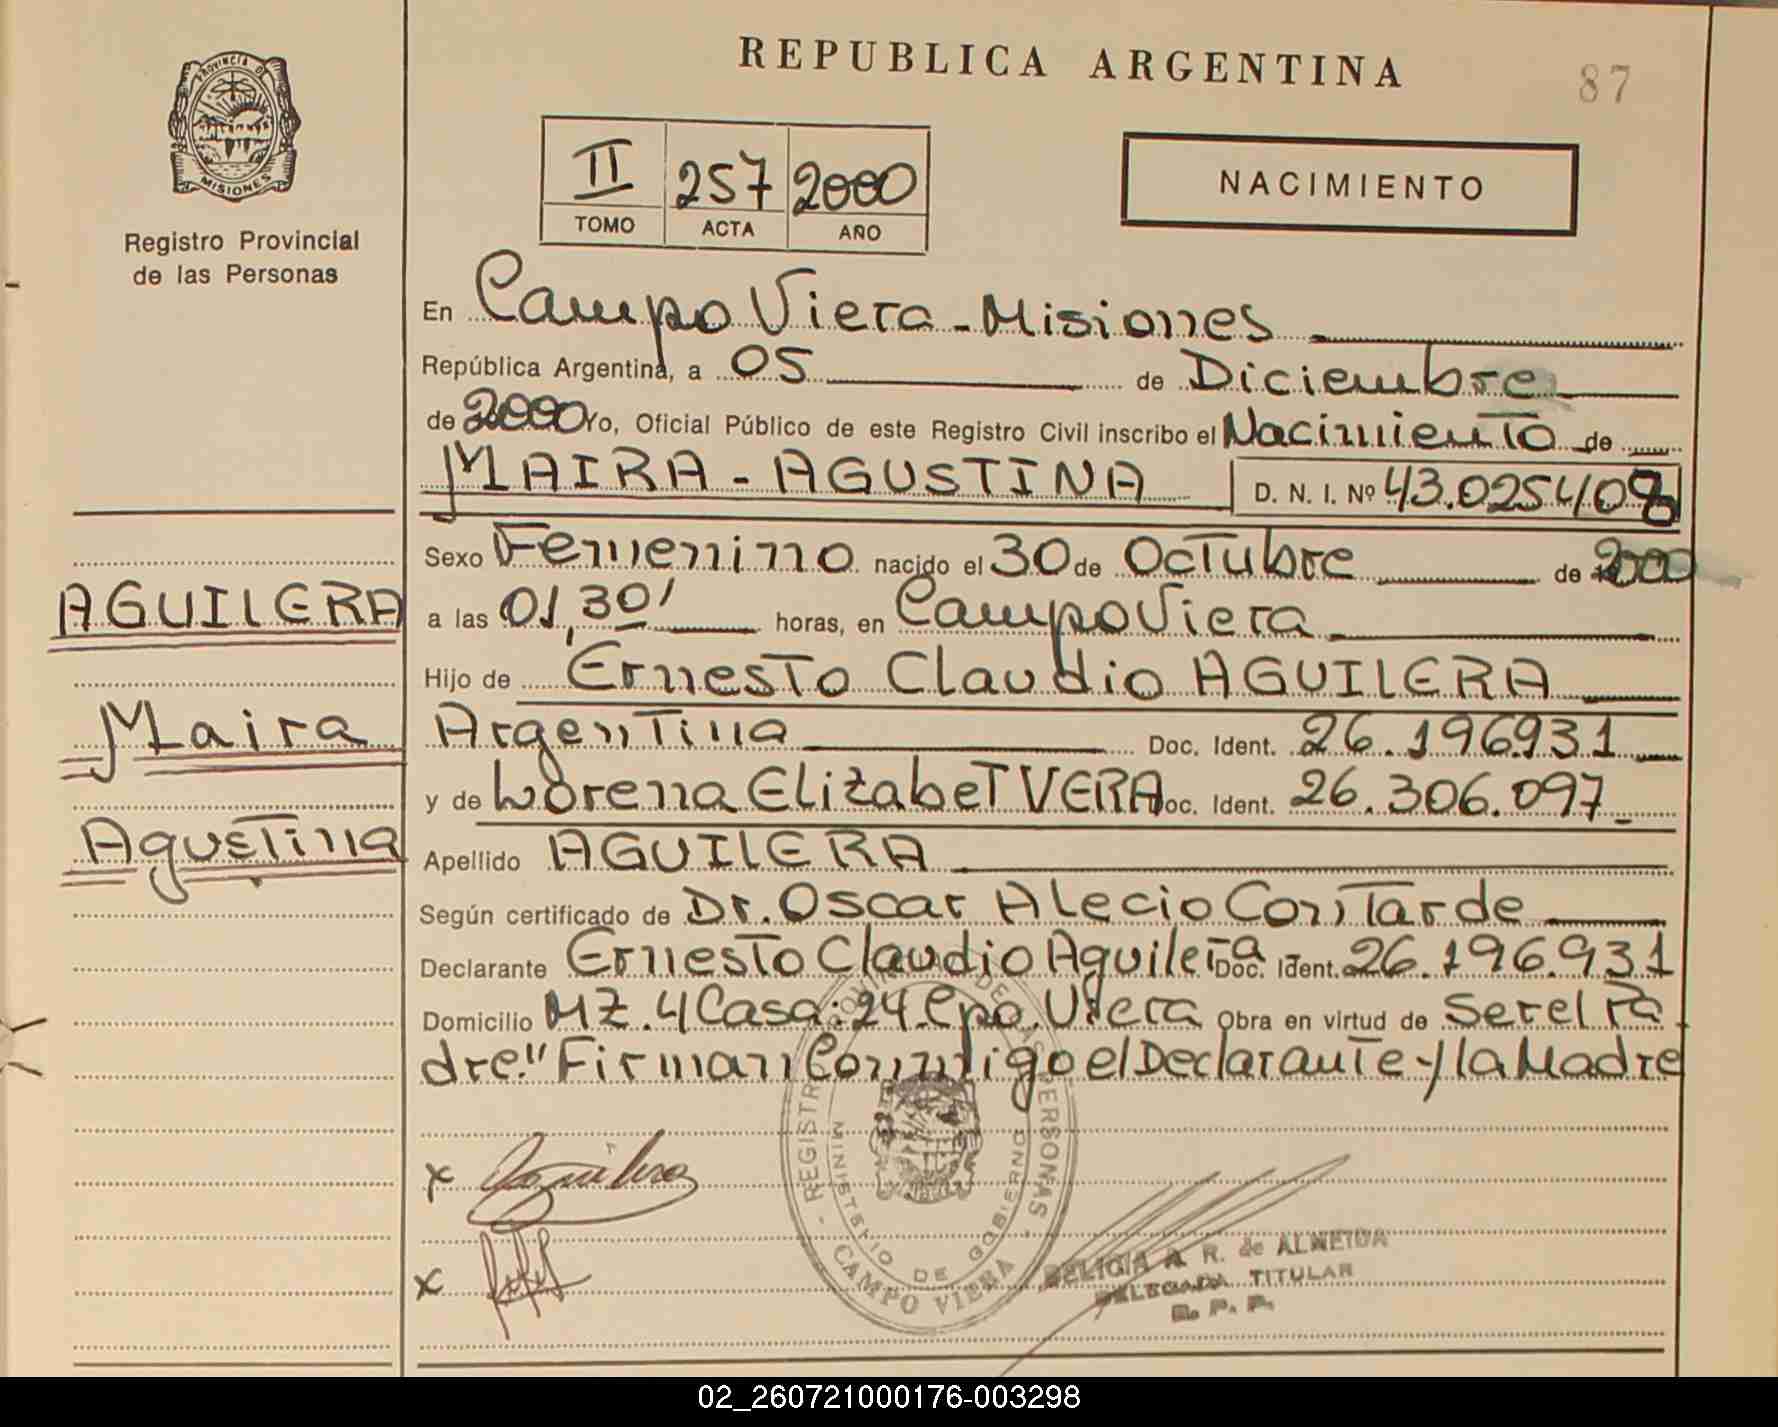 REPUBLICA ARGENTINA
87
PROVINCIA DE
MISIONES
Registro Provincial
de las Personas
II 257 2000
TOMO ACTA AÑO
NACIMIENTO
En Campo Viera - Misiones
República Argentina, a 05 de Diciembre
de 2000 Yo, Oficial Público de este Registro Civil inscribo el Nacimiento de
MAIRA - AGUSTINA D. N. I. Nº 43.025408
Sexo Femenino nacido el 30 de Octubre de 2000
a las 01,30' horas, en Campo Viera
Hijo de Ernesto Claudio AGUILERA
Argentina Doc. Ident. 26.196931
y de Lorena Elizabet VERA Doc. Ident. 26.306.097
Apellido AGUILERA
Según certificado de Dr. Oscar Alecio Contarde
Declarante Ernesto Claudio Aguilera Doc. Ident. 26.196.931
Domicilio MZ. 4 Casa: 24. Cpo. Viera Obra en virtud de Ser el Pa
dre." Firman Conmigo el Declarante y la Madre
AGUILERA
Maira
Agustina
x
x
REGISTRO PROVINCIAL DE LAS PERSONAS
MINISTERIO DE GOBIERNO
CAMPO VIERA
DELICIA A. R. de ALMEIDA
DELEGADA TITULAR
R. P. P.
02_260721000176-003298